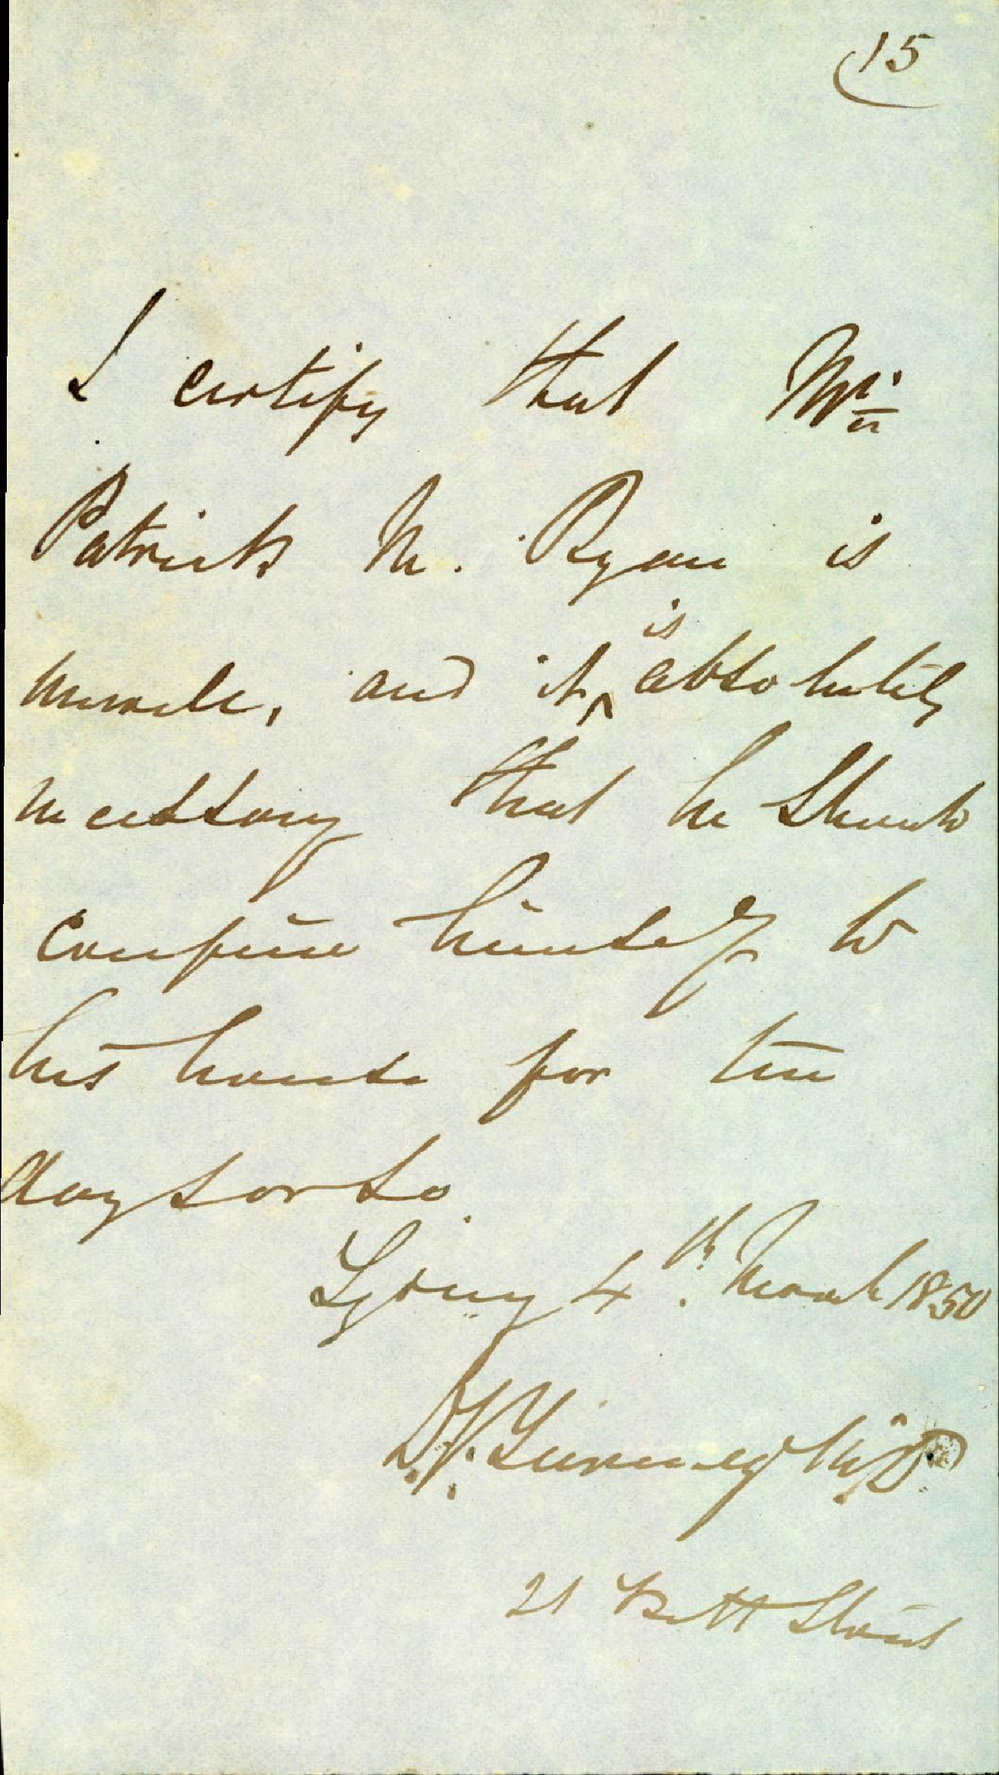 15
I certify that Mr
Patrick M. Ryan is
unwell, and it is absolutely
necessary that he should
confine himself to
his house for ten
days or so.
Sydney 4th. March 1850
M.D.
21 Pitt Street